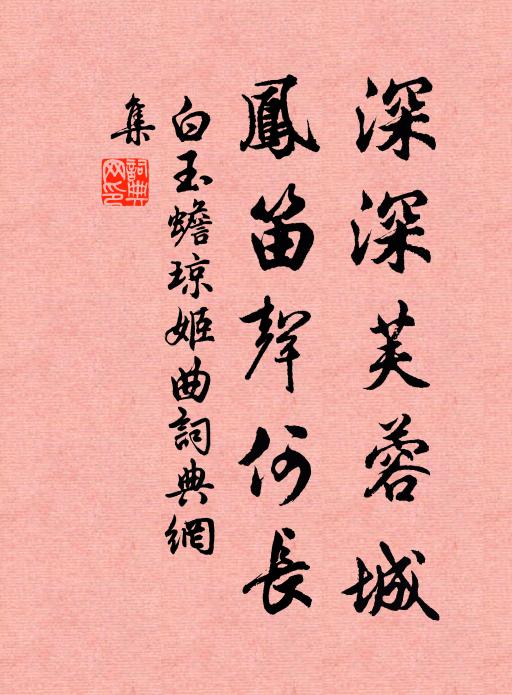 深深芙蓉城
鳳笛聲何長
白玉蟾琼姬曲詞典網
集
詞典網印